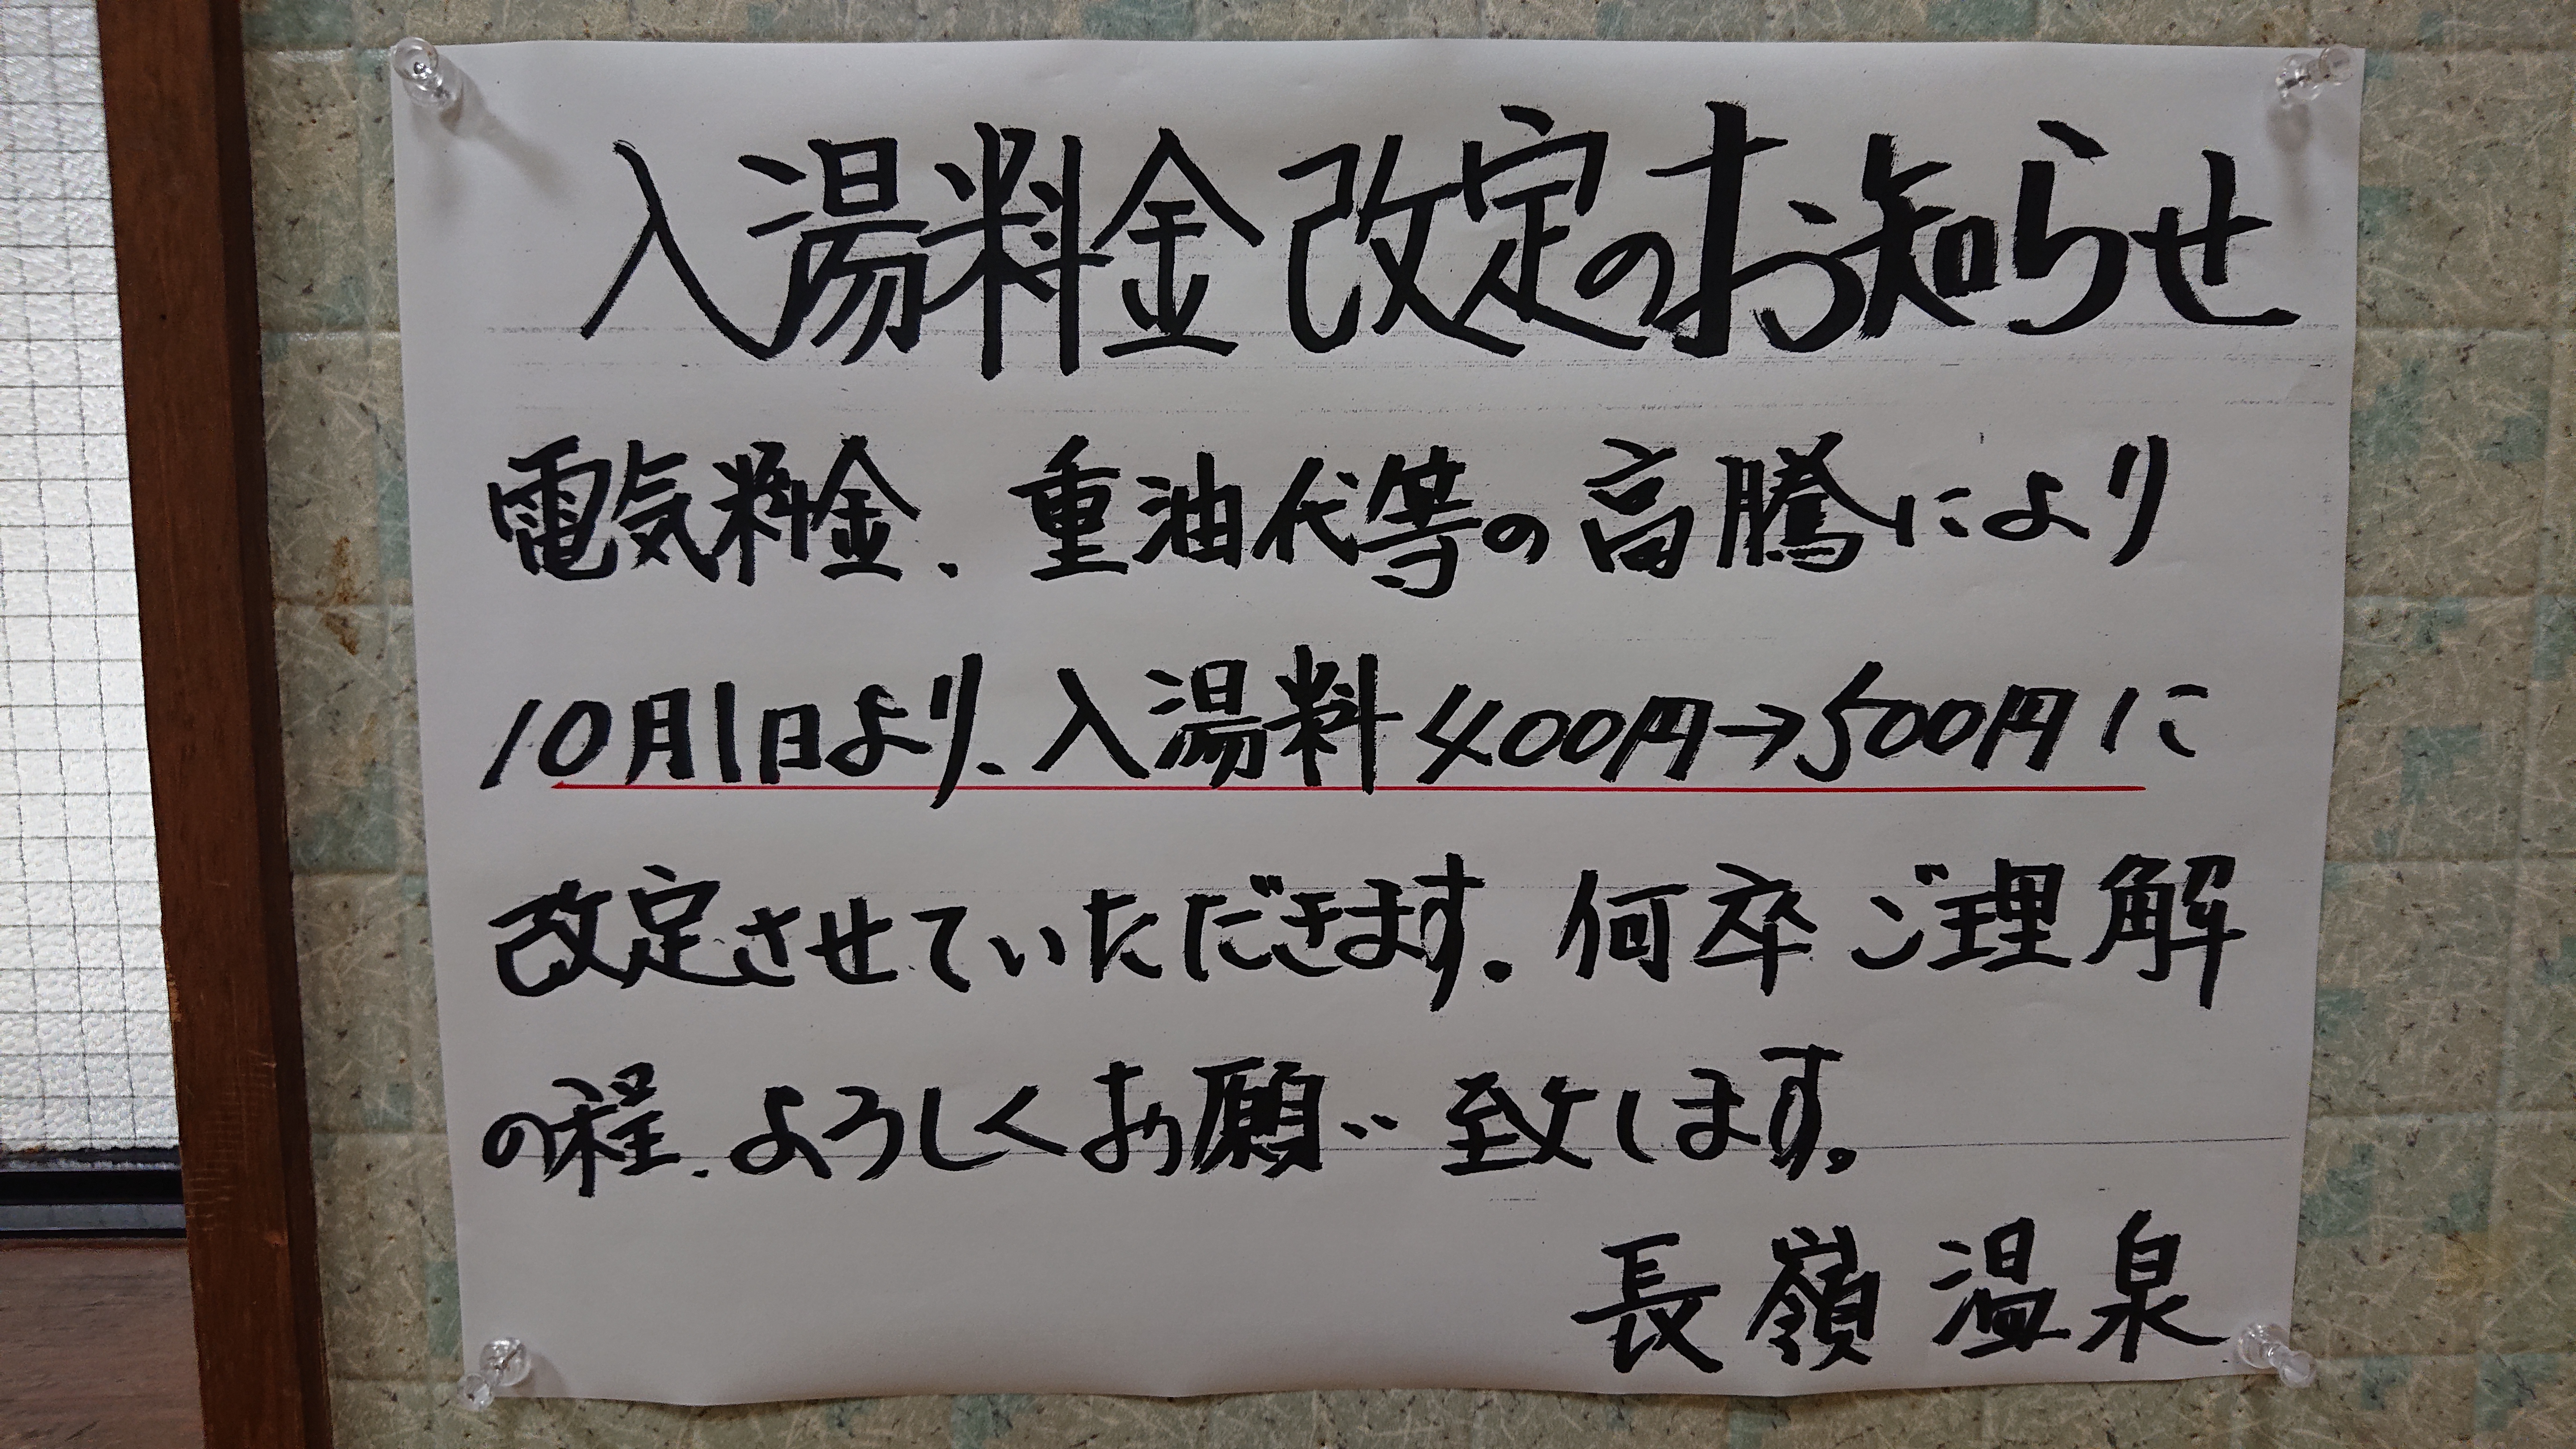 入湯料金改定のお知らせ
電気料金、重油代等の高騰により
10月1日より、入湯料400円→500円に
改定させていただきます。何卒ご理解
の程、よろしくお願い致します。
長嶺温泉